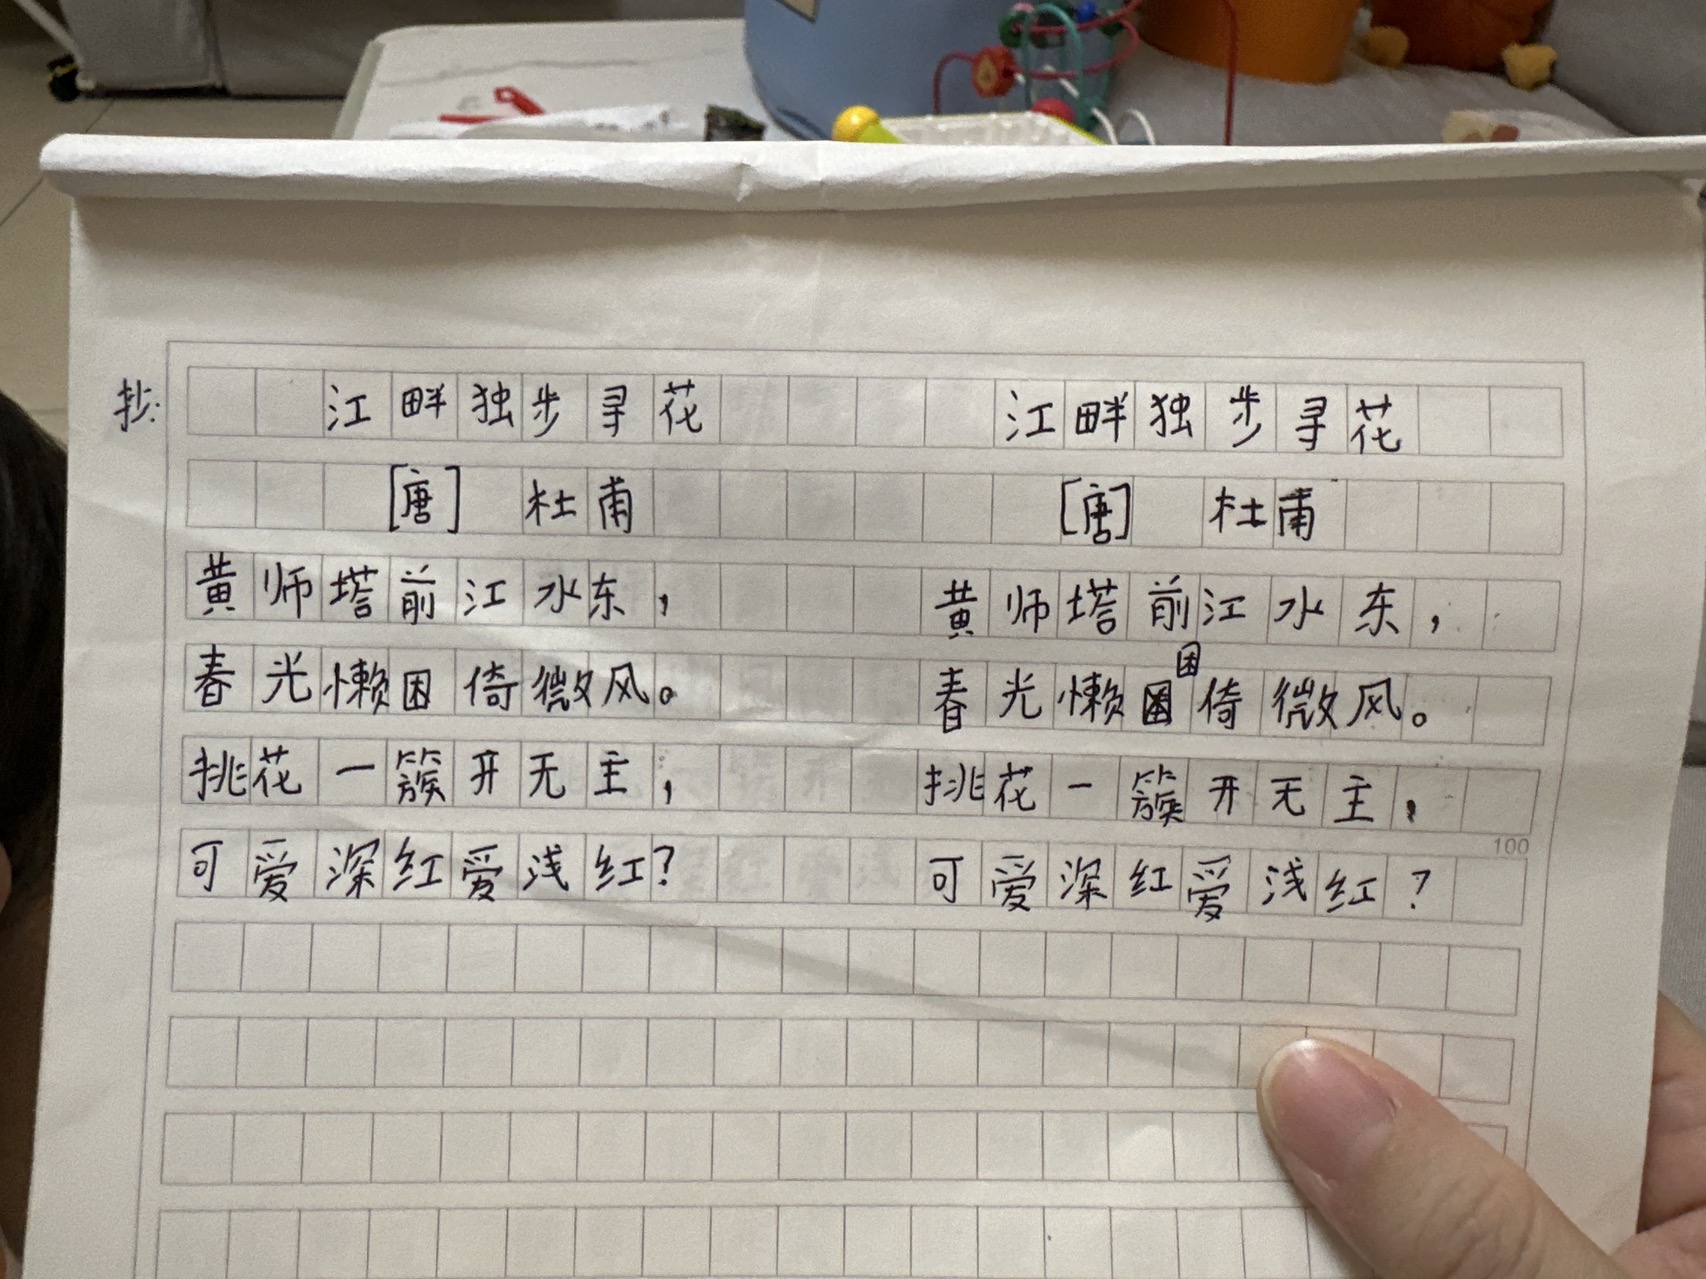 抄:
江畔独步寻花
[唐] 杜甫
黄师塔前江水东，
春光懒困倚微风。
挑花一簇开无主，
可爱深红爱浅红?
江畔独步寻花
[唐] 杜甫
黄师塔前江水东，
春光懒困倚微风。
挑花一簇开无主，
可爱深红爱浅红?
100